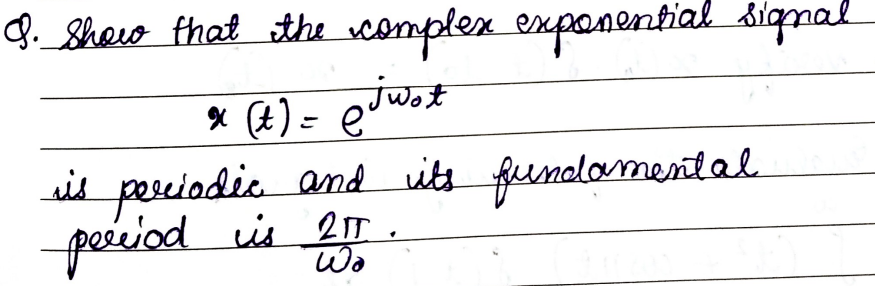 Q. Show that the complex exponential signal
x(t) = e^{jω₀t}
is periodic and its fundamental
period is 2π/ω₀.